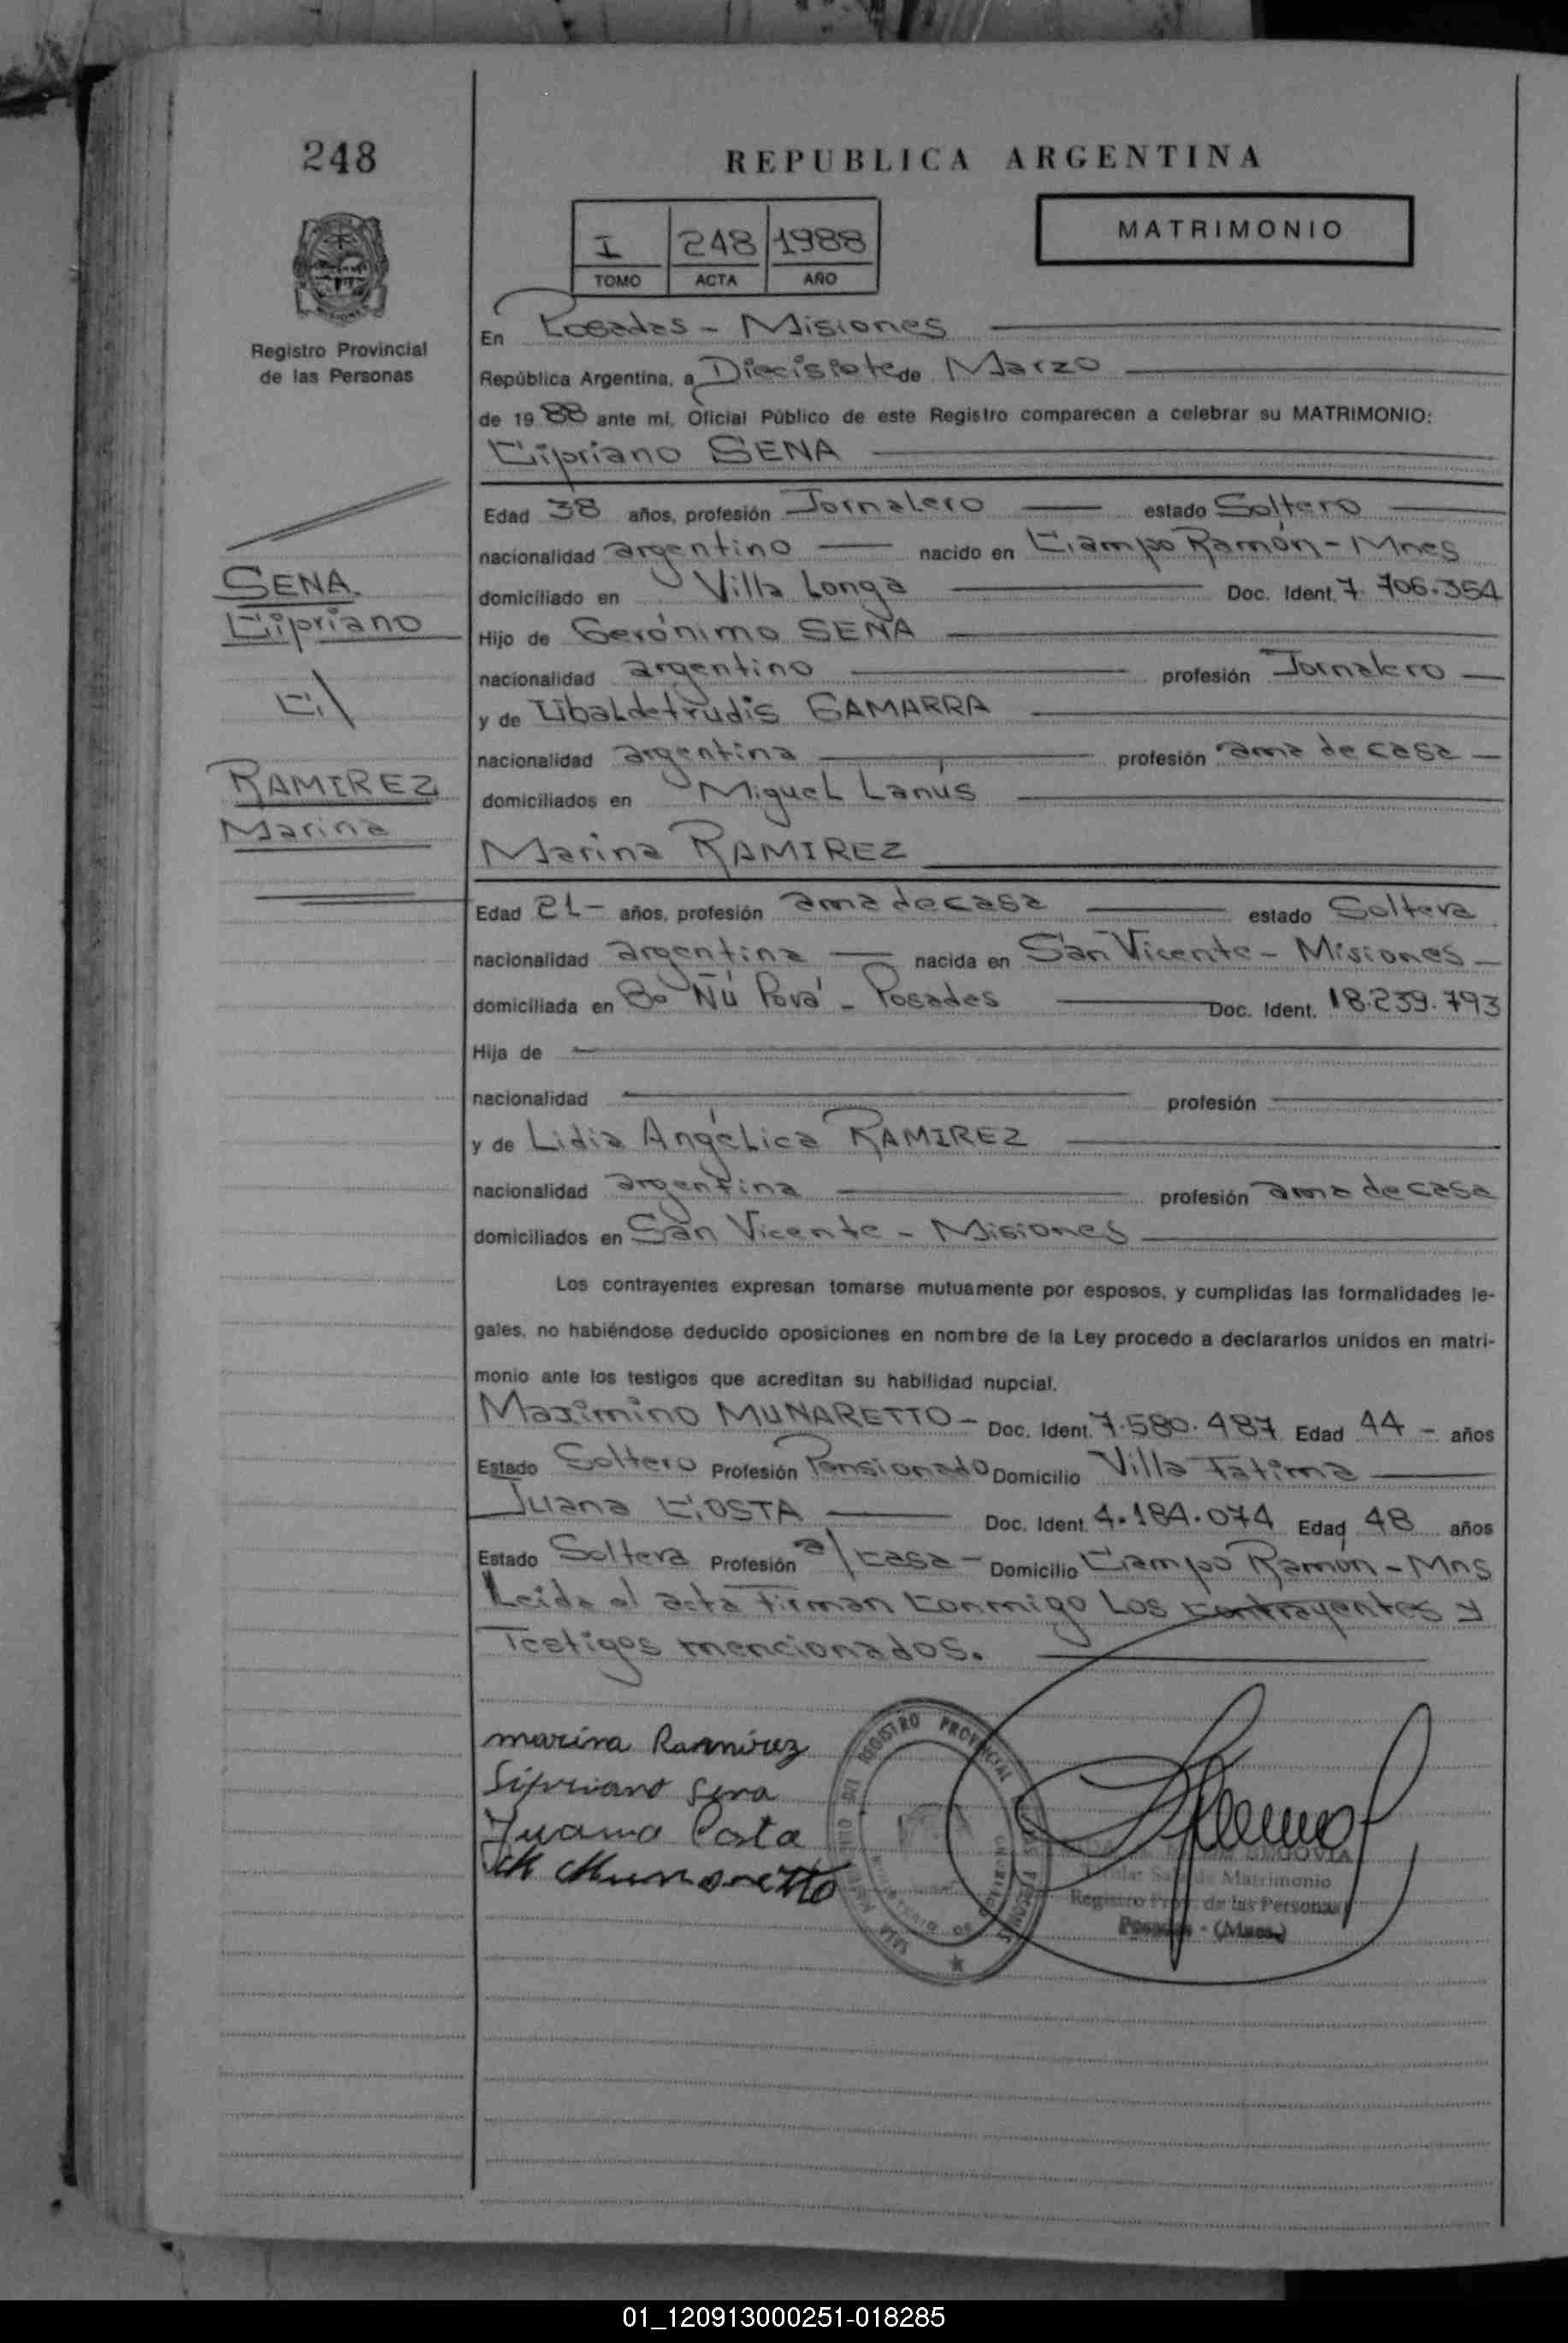 248
REPUBLICA ARGENTINA
I 248 1988
TOMO ACTA AÑO
MATRIMONIO
Registro Provincial
de las Personas
En Posadas - Misiones
República Argentina, a Diecisiete de Marzo
de 1988 ante mí, Oficial Público de este Registro comparecen a celebrar su MATRIMONIO:
Cipriano SENA
Edad 38 años, profesión Jornalero estado Soltero
nacionalidad argentino nacido en Campo Ramón - Mnes
domiciliado en Villa Longa Doc. Ident. 7.706.354
Hijo de Gerónimo SENA
nacionalidad argentino profesión Jornalero
y de Ubaldetrudis GAMARRA
nacionalidad argentina profesión ama de casa
domiciliados en Miguel Lanús
SENA
Cipriano
C/
RAMIREZ
Marina
Marina RAMIREZ
Edad 21 - años, profesión ama de casa estado Soltera
nacionalidad argentina nacida en San Vicente - Misiones
domiciliada en Bo Ñú Porá - Posadas Doc. Ident. 18.239.793
Hija de
nacionalidad profesión
y de Lidia Angélica RAMIREZ
nacionalidad argentina profesión ama de casa
domiciliados en San Vicente - Misiones
Los contrayentes expresan tomarse mutuamente por esposos, y cumplidas las formalidades le-
gales, no habiéndose deducido oposiciones en nombre de la Ley procedo a declararlos unidos en matri-
monio ante los testigos que acreditan su habilidad nupcial.
Maximino MUNARETTO - Doc. Ident. 7.580.487 Edad 44 - años
Estado Soltero Profesión Pensionado Domicilio Villa Fatima
Juana COSTA Doc. Ident. 4.184.074 Edad 48 años
Estado Soltera Profesión a/casa - Domicilio Campo Ramón - Mns
Leida el acta Firman conmigo los contrayentes y
Testigos mencionados.
marina Ramirez
Sipriano Sena
Juana Costa
M Munaretto
REGISTRO PROVINCIAL DE LAS PERSONAS
SEGOVIA
Titular Sala de Matrimonio
Registro Prov. de las Personas
Posadas - (Mnes.)
01_120913000251-018285